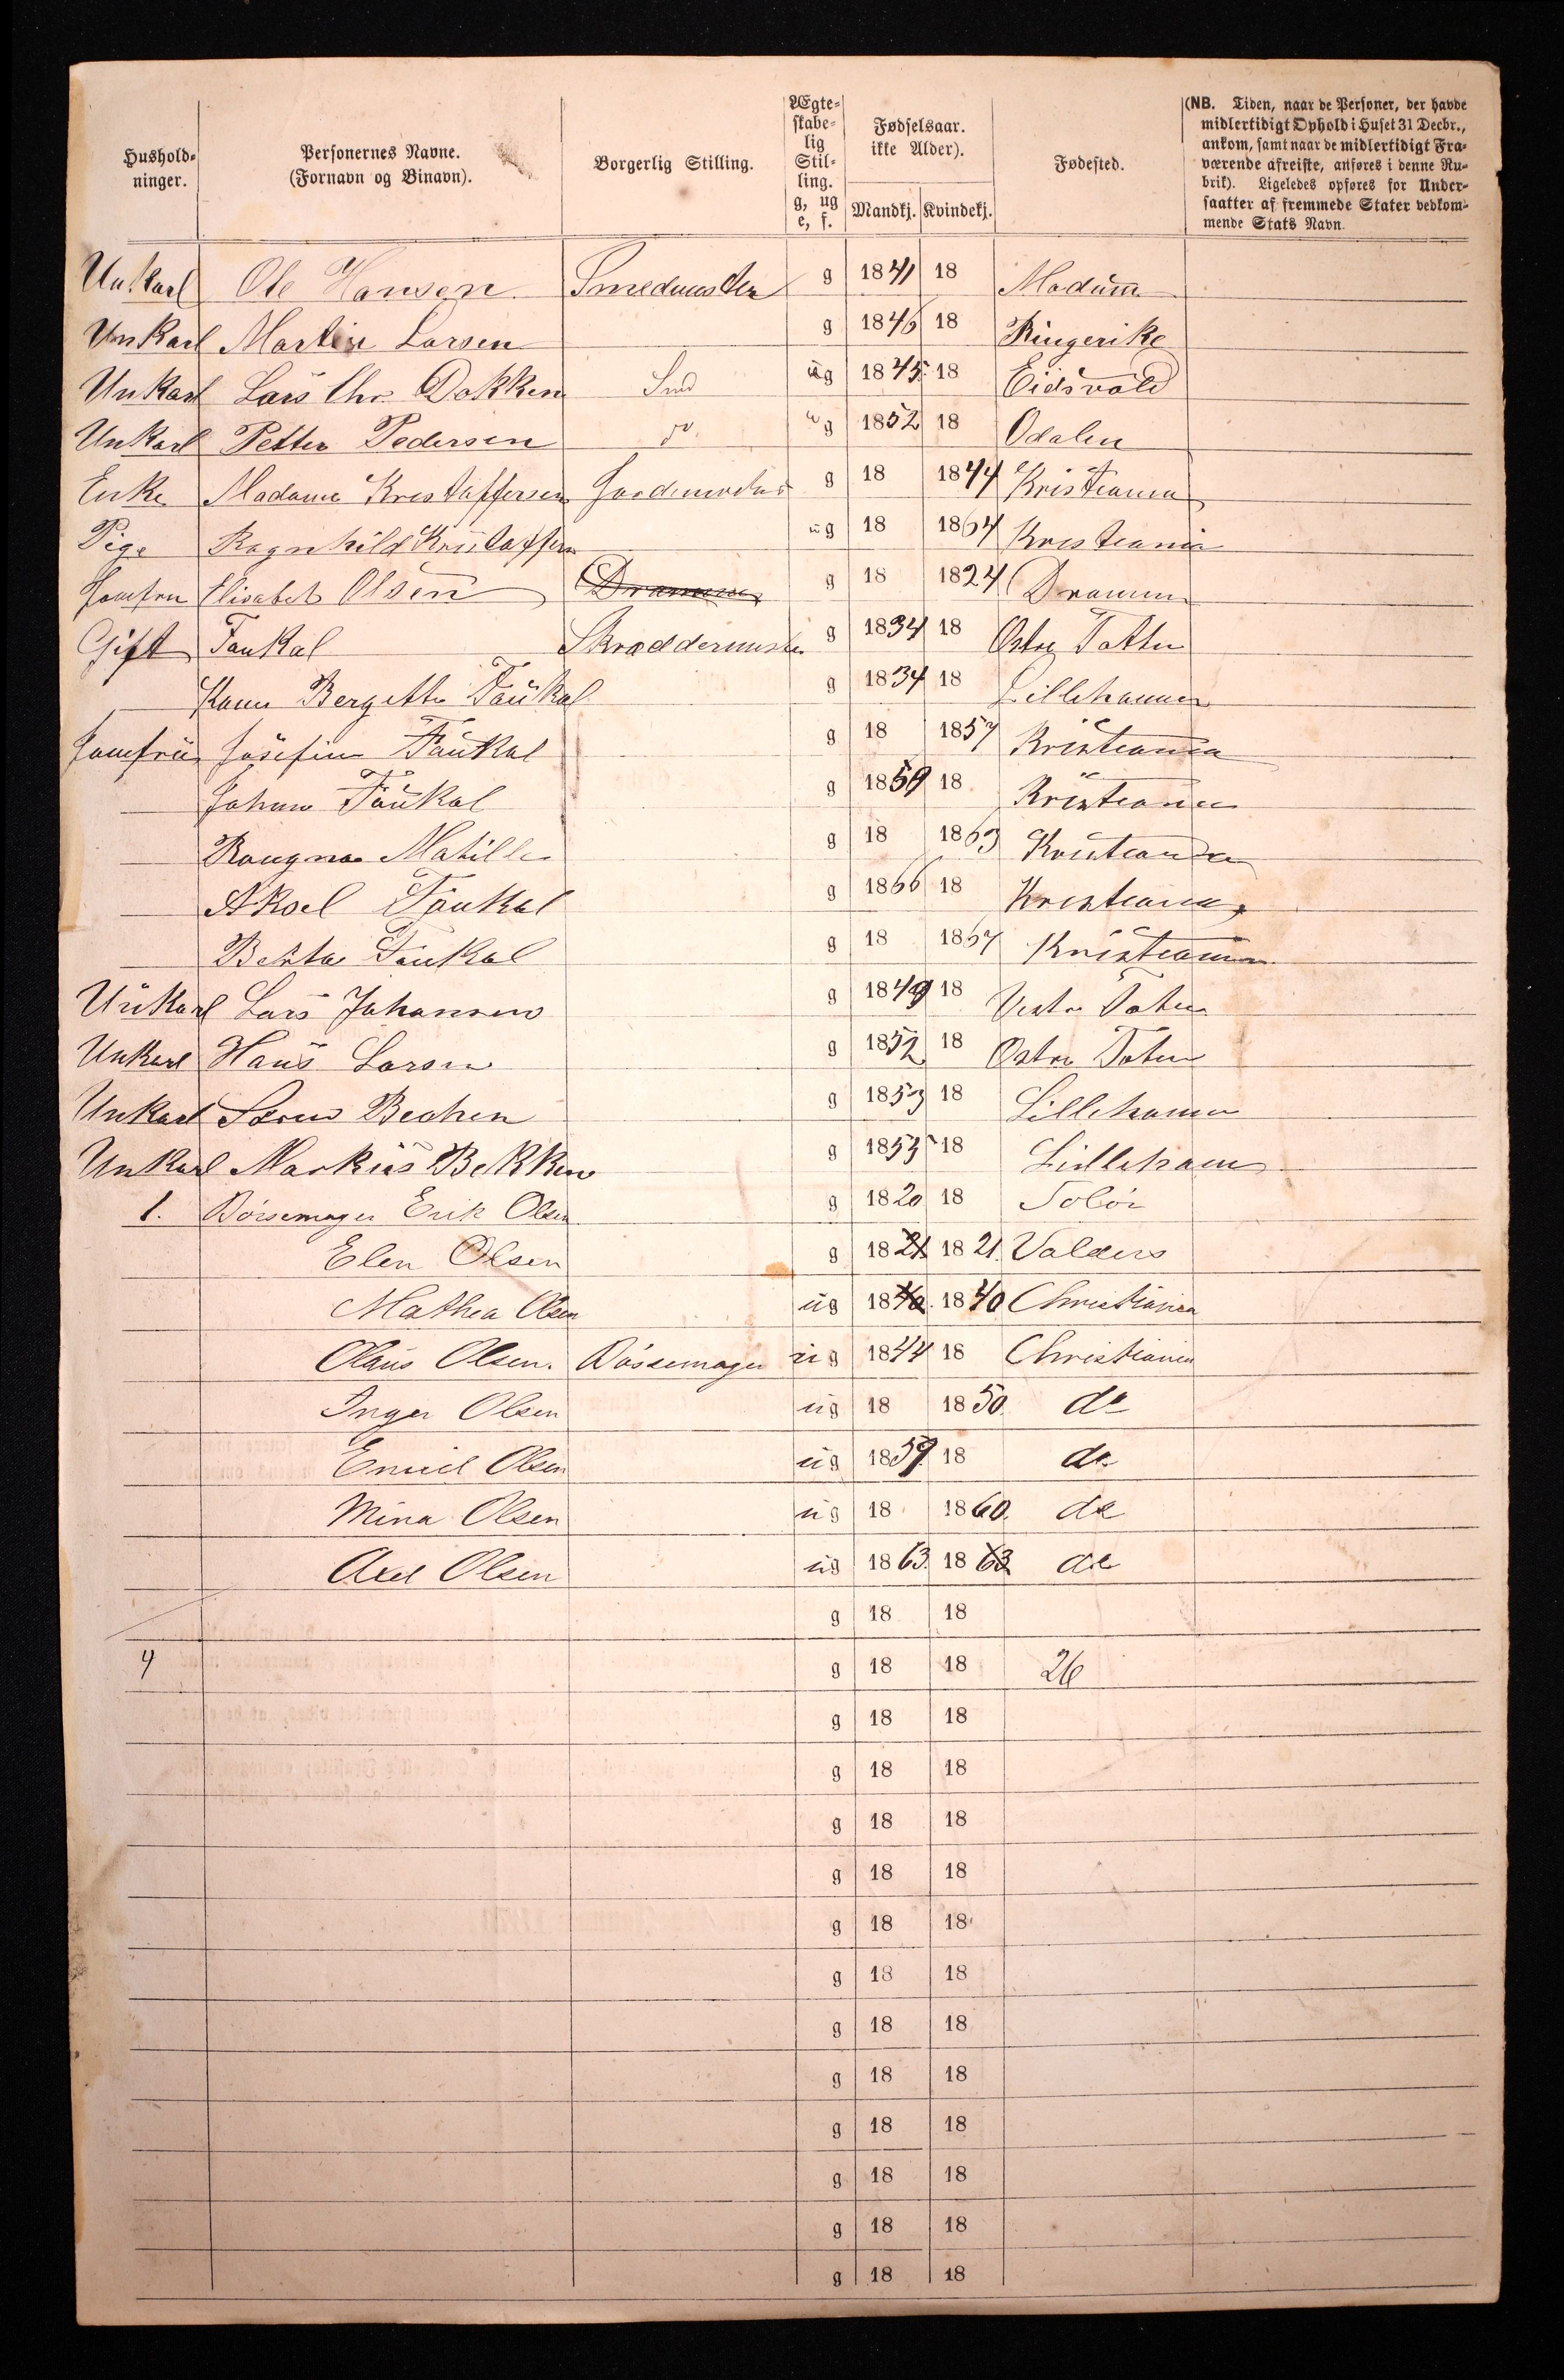 Hushold-
ninger.
Personernes Navne.
(Fornavn og Binavn).
Borgerlig Stilling.
Ægte-
skabe-
lig
Stil-
ling.
g, ug
e, f.
Fødselsaar.
ikke Alder).
Mandkj. Kvindekj.
Fødested.
(NB. Tiden, naar de Personer, der havde
midlertidigt Ophold i Huset 31 Decbr.,
ankom, samt naar de midlertidigt Fra-
værende afreiste, anføres i denne Ru-
brik). Ligeledes opføres for Under-
saatter af fremmede Stater vedkom-
mende Stats Navn.
Unkarl Ole Hansen Smedmester g 1841 18 Modum
Unkarl Martin Larsen g 1846 18 Ringerike
Unkarl Lars Chr Dokken Smd ug 1845 18 Eidsvold
Unkarl Petter Pedersen do ug 1852 18 Odalen
Enke Madame Kristoffersen g 18 1844 Kristiania
Pige Ragnhild Kristoffersen ug 18 1864 Kristiania
Jomfru Elisabet Olsen Drammen g 18 1824 Drammen
Gift Faukal Skreddermester g 1834 18 Østre Totten
Bergette Faukal g 1834 18 Lillehammer
Jomfru Josefine Faukal g 18 1857 Kristiania
Johan Faukal g 1859 18 Kristiania
Raugna Matille g 18 1863 Kristiania
Aksel Faukal g 1866 18 Kristiania
Berta Faukal g 18 1867 Kristiania
Unkarl Lars Johansen g 1849 18 Vestre Toten
Unkarl Hans Larsen g 1852 18 Østre Toten
Unkarl g 1853 18 Lillehammer
Unkarl Markus Bekken g 1855 18 Lillehammer
1. Børsemager Erik Olsen g 1820 18 Solør
Elen Olsen g 1821 1821. Valders
Mathea Olsen ug 1840. 1840 Christiania
Olaus Olsen. Børsemager ug 1844 18 Christiania
Inger Olsen ug 18 1850. do
Emil Olsen ug 1859. 18 do
Mina Olsen ug 18 1860. do
Axel Olsen ug 1863. 1863 do
g 18 18
4 g 18 18 26
g 18 18
g 18 18
g 18 18
g 18 18
g 18 18
g 18 18
g 18 18
g 18 18
g 18 18
g 18 18
g 18 18
g 18 18